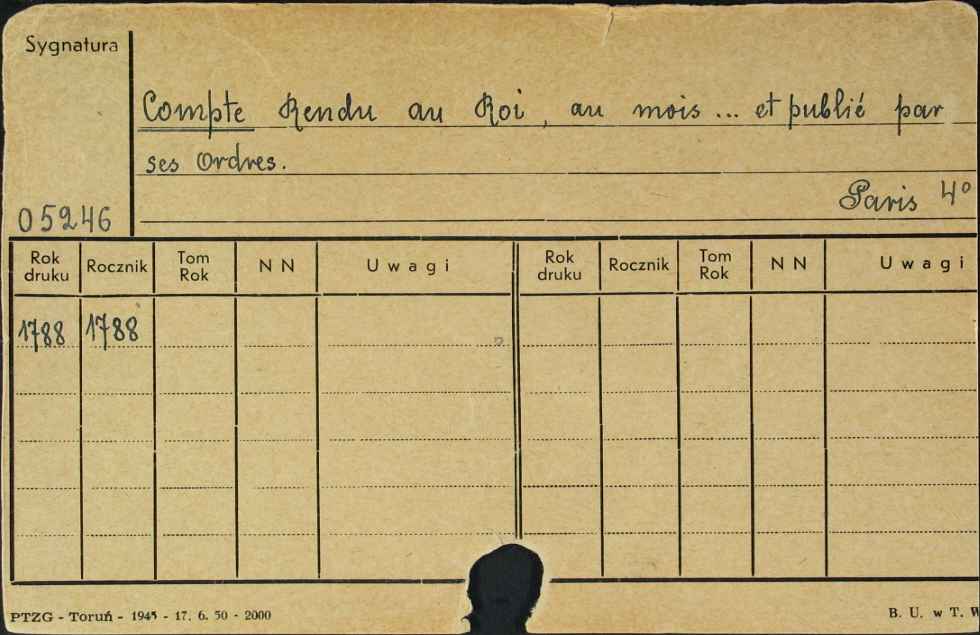 Sygnatura
Compte Rendu au Roi, au mois ... et publié par
ses Ordres.
Paris 4°
05246
Rok druku Rocznik Tom Rok N N Uwagi Rok druku Rocznik Tom Rok N N Uwagi
1788 1788
PTZG - Toruń - 1945 - 17. 6. 50 - 2000 B. U. w T. W